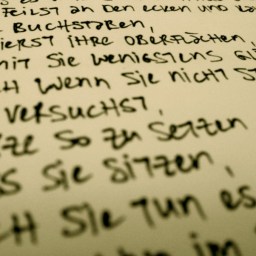 FEILST AN DEN ECKEN UND
BUCHSTABEN,
IERST IHRE OBERFLÄCHEN,
MIT SIE WENIGSTENS
H WENN SIE NICHT
VERSUCHST,
ZE SO ZU SETZEN
S SIE SITZEN,
H SIE TUN ES
IM